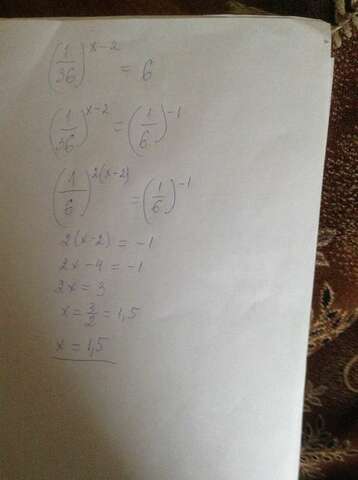 (1/36)^(x-2) = 6
(1/36)^(x-2) = (1/6)^(-1)
(1/6)^(2(x-2)) = (1/6)^(-1)
2(x-2) = -1
2x-4 = -1
2x = 3
x = 3/2 = 1,5
x = 1,5